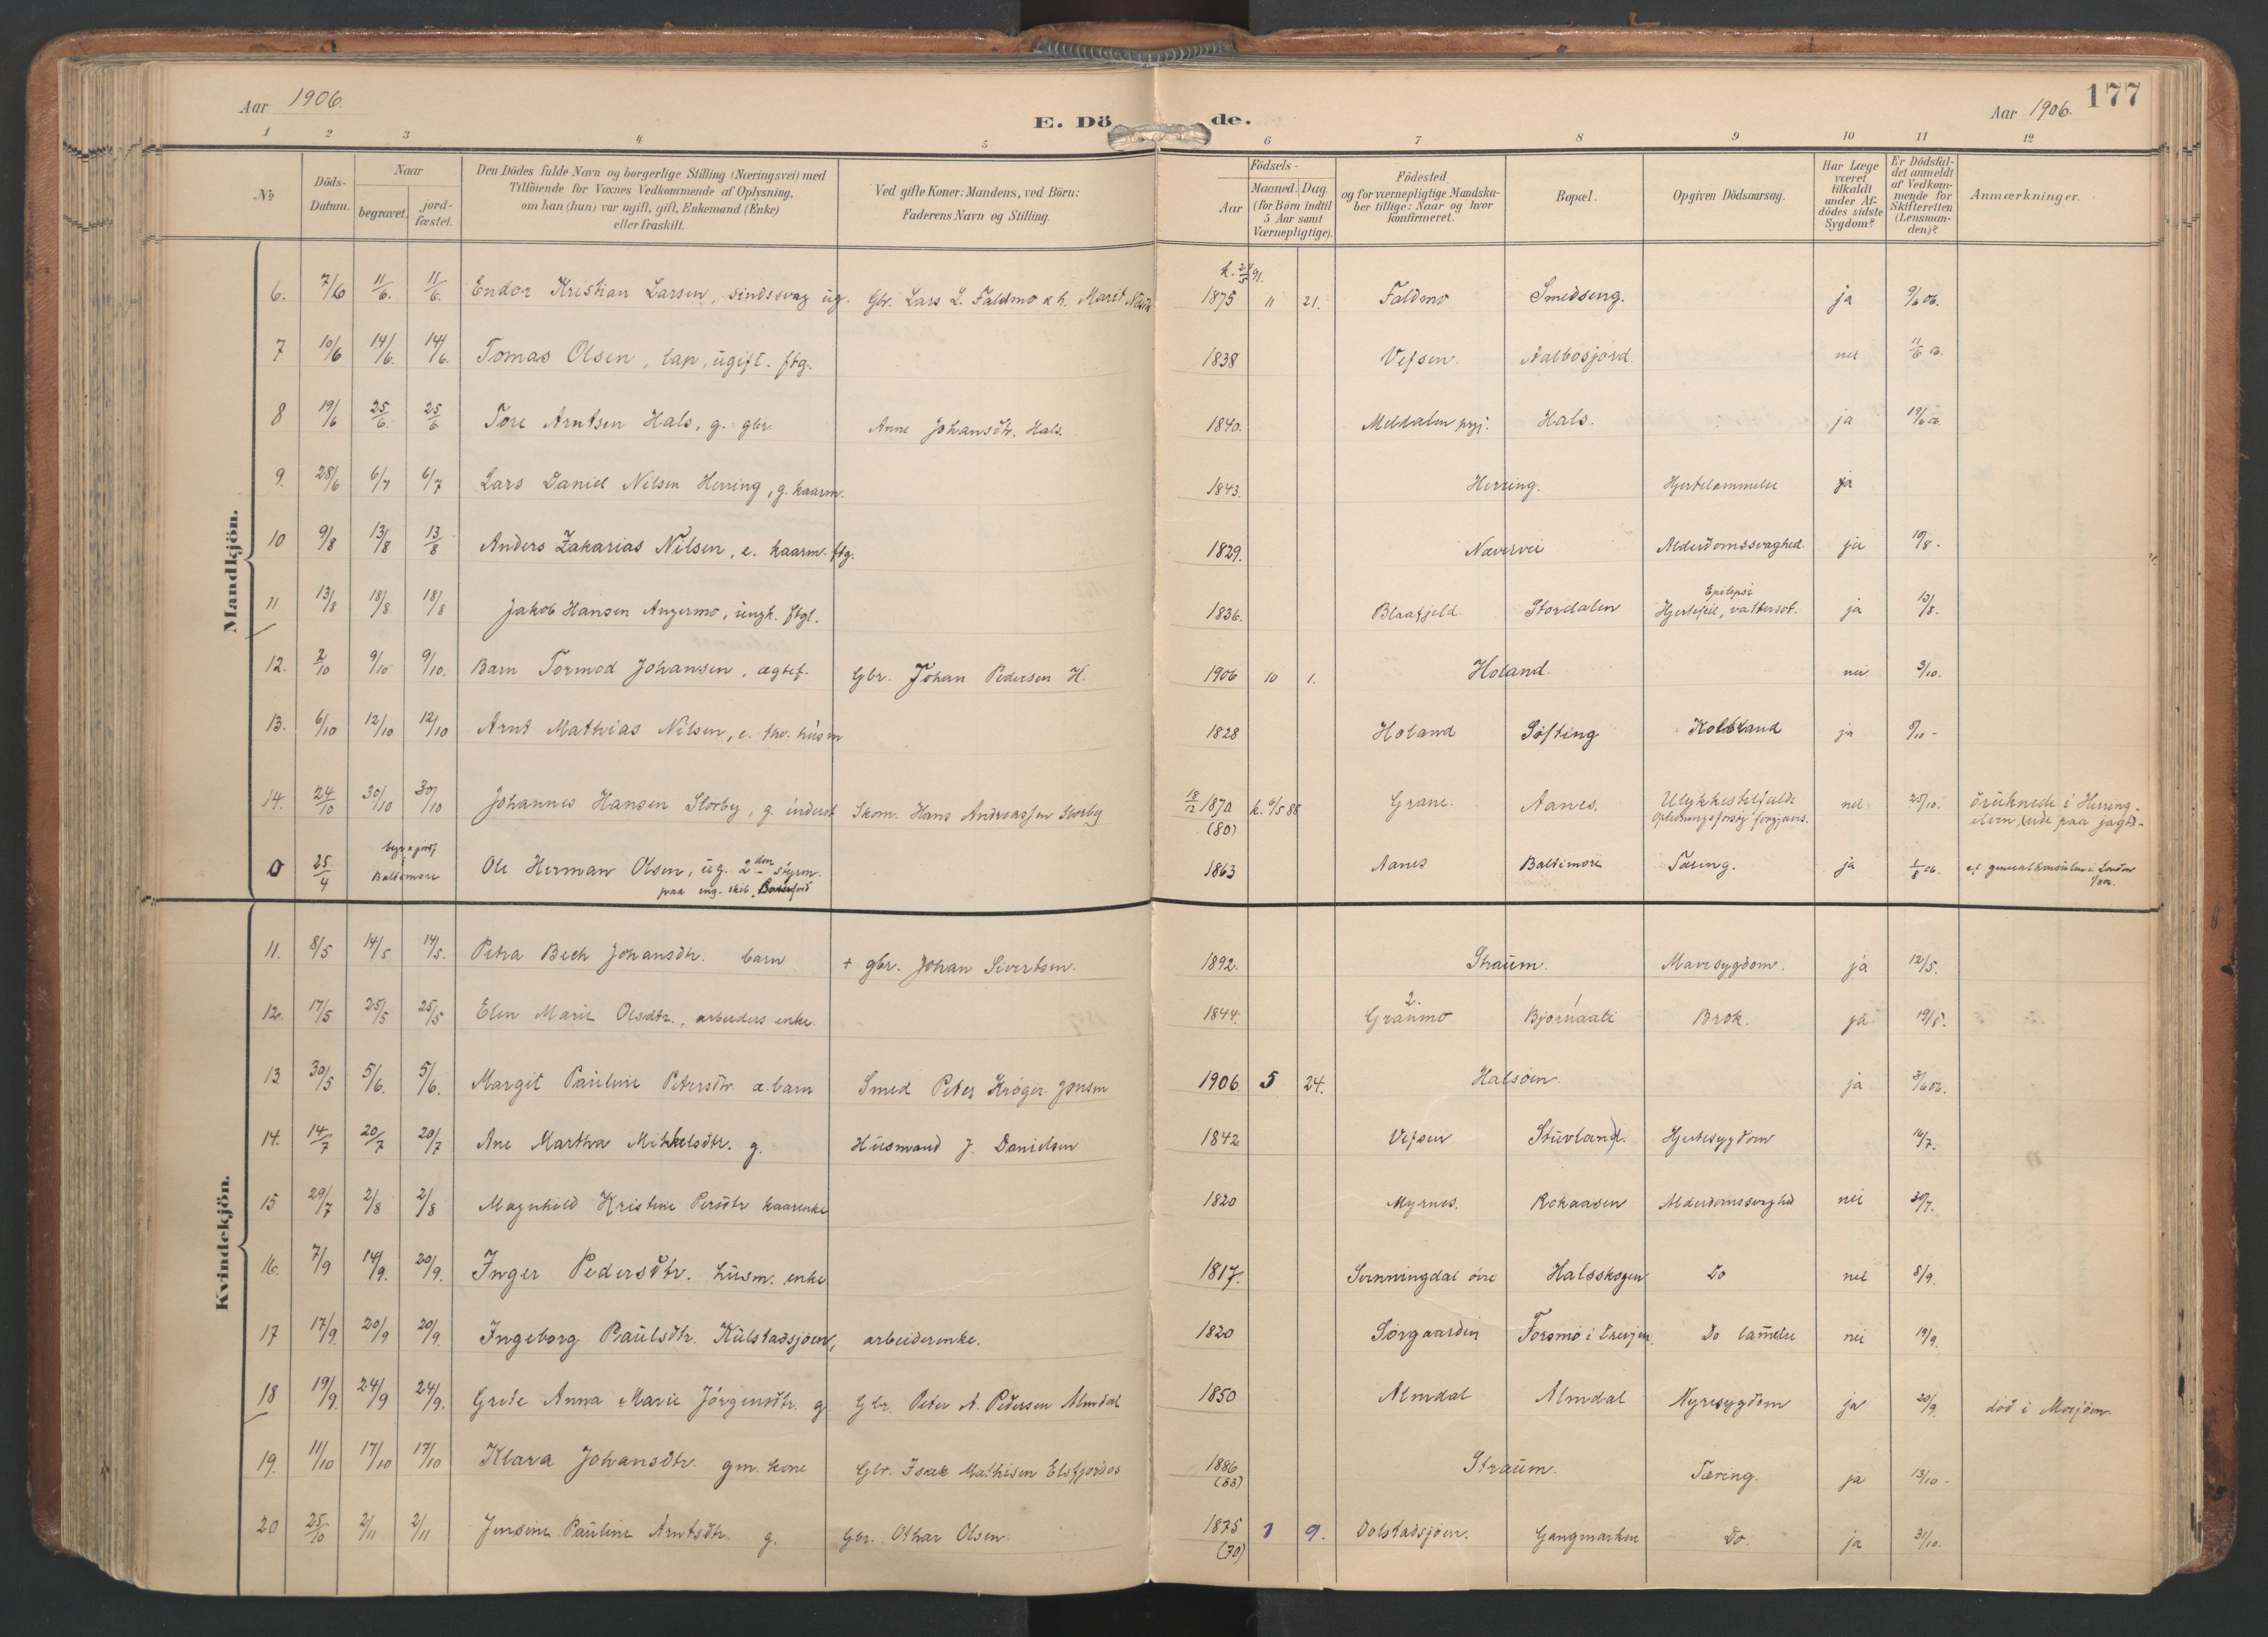 Aar 1906.
E. Dö de.
Aar 1906.
177
1 2 3 4 5 6 7 8 9 10 11 12
No
Döds-Datum.
Naar
begravet.
jord-fæstet.
Den Dödes fulde Navn og borgerlige Stilling (Næringsvei) med
Tilföiende for Voxnes Vedkommende af Oplysning,
om han (hun) var ugift, gift, Enkemand (Enke)
eller fraskilt.
Ved gifte Koner: Mandens, ved Börn:
Faderens Navn og Stilling.
Födsels-
Aar
Maaned. Dag.
(for Börn indtil
5 Aar samt
Værnepligtige).
Födested
og for værnepligtige Mandska-
ber tillige: Naar og hvor
konfirmeret.
Bopæl.
Opgiven Dödsaarsag.
Har Læge
været
tilkaldt
under Af-
dödes sidste
Sygdom?
Er Dödsfal-
det anmeldt
af Vedkom-
mende for
Skifteretten
(Lensman-
den)?
Anmærkninger.
Mandkjön.
6. 7/6 11/6. 11/6. Endor Kristian Larsen, sindssvag ug. Gbr. Lars L. Faldmo & h. Marit 1875 11 21. Faldmo Smedseng. ja 9/6 06.
7 10/6 14/6. 14/6. Tomas Olsen, lap, ugift. ftg. 1838 Vefsen. nei 11/6
8 19/6 25/6. 25/6 Tore Arntsen Hals, g. gbr. Anne Johansdtr. Hals. 1840. Meldalen prgj. Hals. ja 19/6 06.
9. 28/6 6/7 6/7 Lars Daniel Nilsen Herring, g. kaarm. 1843. Herring. Hjertelammelse ja
10 9/8 13/8 13/8 Anders Zakarias Nilsen, e. kaarm. ftg. 1829. Nævervei Alderdomssvaghed. ja 10/8.
11 13/8 18/8 18/8 Jakob Hansen Angermo, ungk. ftgl. 1836. Blaafjeld Stordalen Epilepsi Hjertefeil, vattersot. ja 13/8.
12. 2/10 9/10 9/10. Barn Tormod Johansen, ægtef. Gbr. Johan Pedersen H. 1906 10 1. Holand. nei 3/10.
13. 6/10 12/10 12/10 Arnt Mathias Nilsen, e. fhv. husm 1828 Holand Söfting Koldbrand ja 8/10
14. 24/10 30/10 30/10 Johannes Hansen Storby, g. inderst Skom. Hans Andreassen Storby 18/12 1870 (80) k. 9/5 86 Grane. Aanes. Ulykkestilfælde Oplivningsforsög forgjæves. nei 25/10. druknede i Herring-elven paa jagt
0 25/4 Baltimore Ole Herman Olsen, ug. 2den styrm. paa eng. skib 1863 Aanes Baltimore Tæring. ja 1/8 06. generalkonsulen i London
Kvindekjön.
11. 8/5 14/5 14/5. Petra Bech Johansdtr. barn + gbr. Johan Sivertsen. 1892. Straum. Mavesygdom. ja 12/5.
12. 17/5 25/5 25/5 Elen Marie Olsdtr., arbeiders enke. 1844. Granmo 2. Bjornaali Brok. ja 19/5.
13. 30/5 5/6. 5/6. Margit Pauline Petersdtr. æ. barn Smed Peter Kröger Jensen 1906. 5 24. Halsöen. ja 3/6 06.
14. 14/7 20/7 20/7 Ane Martha Mikkelsdtr. g. Husmand J. Danielsen 1842 Vefsen Stuvland. Hjertesygdom 16/7.
15 29/7 2/8 2/8 Magnhild Kristine Persdtr kaarenke 1820 Myrnes. Rekaasen Alderdomssvaghed nei 30/7.
16. 7/9 14/9. 20/9. Inger Pedersdtr. husm. enke 1817. Svenningdal övre Halsskogen Do nei 8/9.
17 17/9. 20/9 20/9. Ingeborg Paulsdtr. Kulstadsjöen, arbeiderenke. 1820 Sörgaarden Forsmo i Drevjen Do lamelse nei 19/9.
18 19/9. 24/9 24/9. Grete Anna Marie Jörgensdtr. g. Gbr. Peter A. Pedersen Almdal 1850 Almdal Almdal Nyresygdom ja 20/9. död i Mosjöen.
19. 11/10 17/10 17/10 Klara Johansdtr. gm. kone Gbr. Isak Mathisen Elsfjordos 1886 (83) Straum. Tæring. ja 13/10
20 25/10 2/11 2/11 Jensine Pauline Arntsdtr. g. Gbr. Othar Olsen. 1875 (70) 1 9. Dolstadsjöen. Gangmarken Do. ja 31/10.